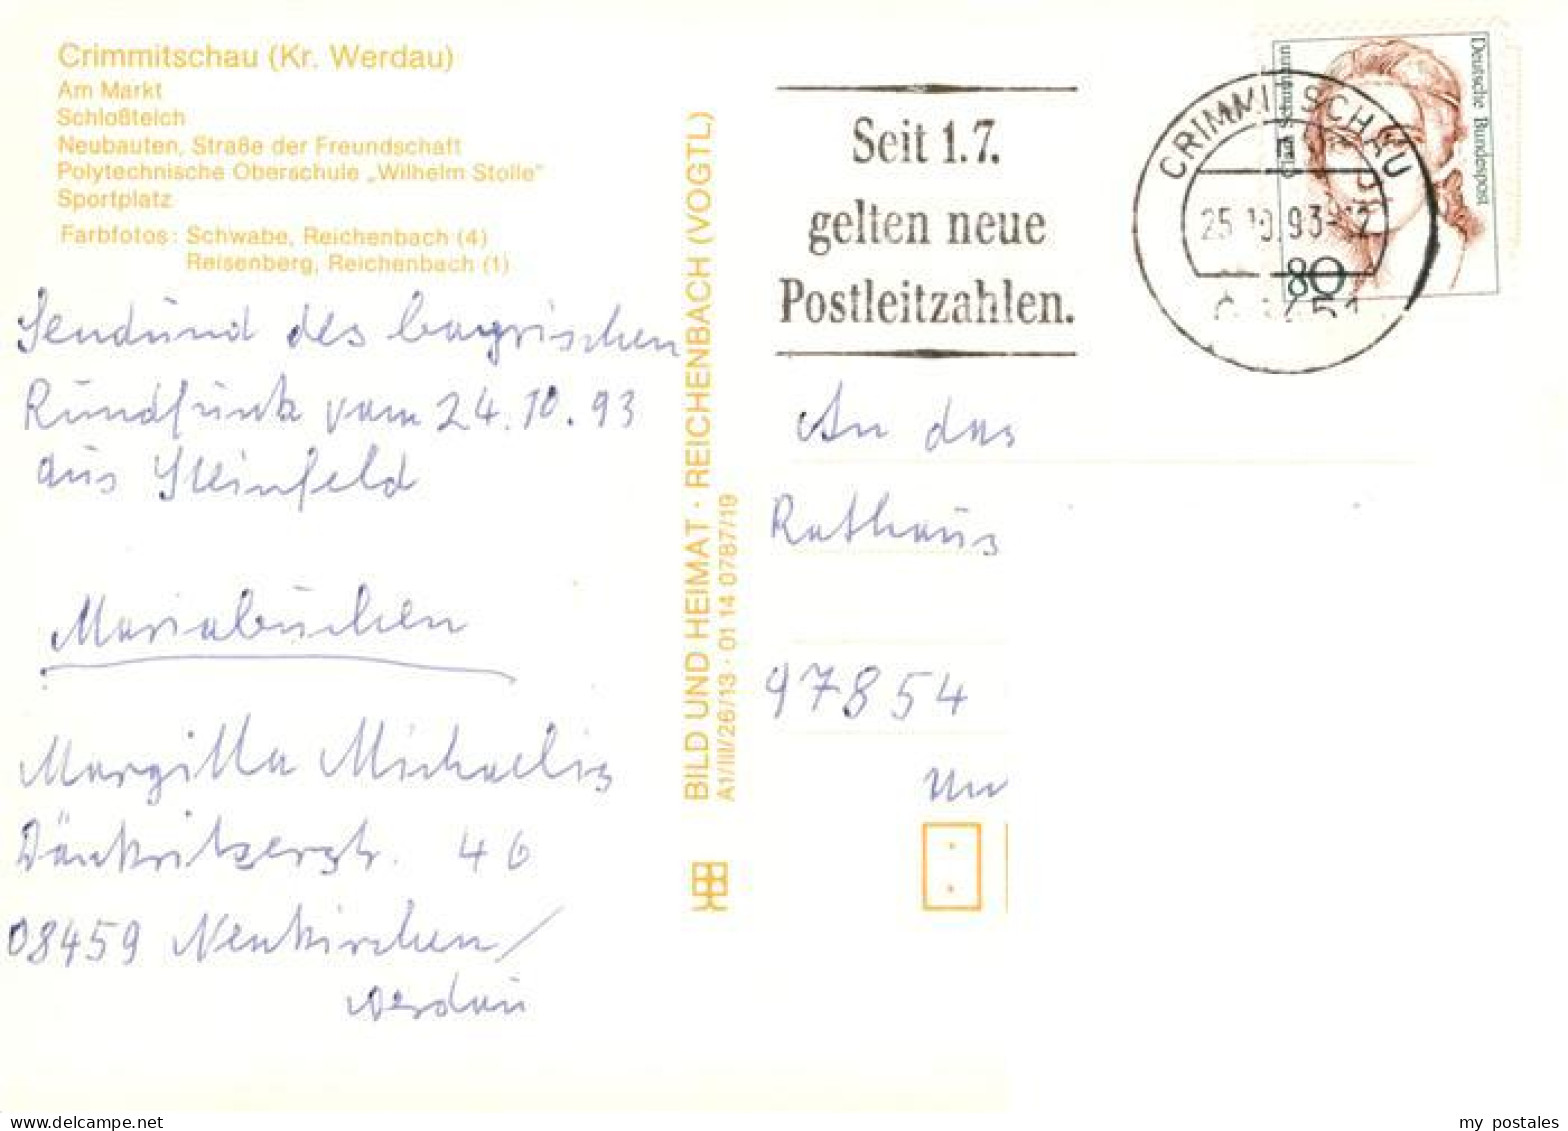 Crimmitschau (Kr. Werdau)
Am Markt
Schloßteich
Neubauten, Straße der Freundschaft
Polytechnische Oberschule „Wilhelm Stolle"
Sportplatz
Farbfotos: Schwabe, Reichenbach (4)
Reisenberg, Reichenbach (1)
Sendund des bayrischen
Rundfunk vom 24.10.93
aus Steinfeld
Mariabuchen
Margitta Michaelis
Dänkritzerstr. 46
08459 Neukirchen/
Werdau
BILD UND HEIMAT · REICHENBACH (VOGTL)
A1/III/26/13 · 01 14 0787/19
Seit 1.7.
gelten neue
Postleitzahlen.
CRIMMITSCHAU
25.10.93-12
Deutsche Bundespost
Schumann
80
An das
Rathaus
97854
my postales